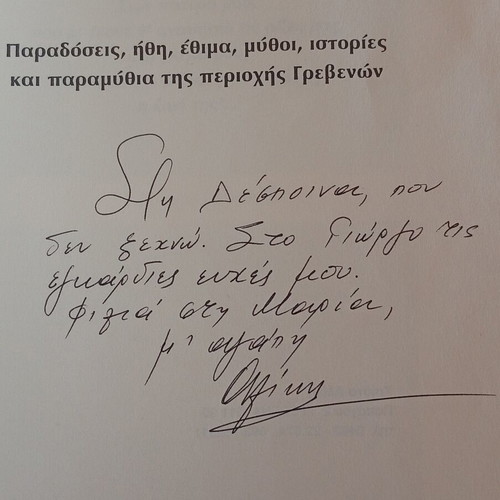 Παραδόσεις, ήθη, έθιμα, μύθοι, ιστορίες
και παραμύθια της περιοχής Γρεβενών
Στη Δέσποινα, που
δεν ξεχνώ. Στο Γιώργο τις
εγκάρδιες ευχές μου.
Φιλιά στη Μαρία,
μ' αγάπη
Αλίκη